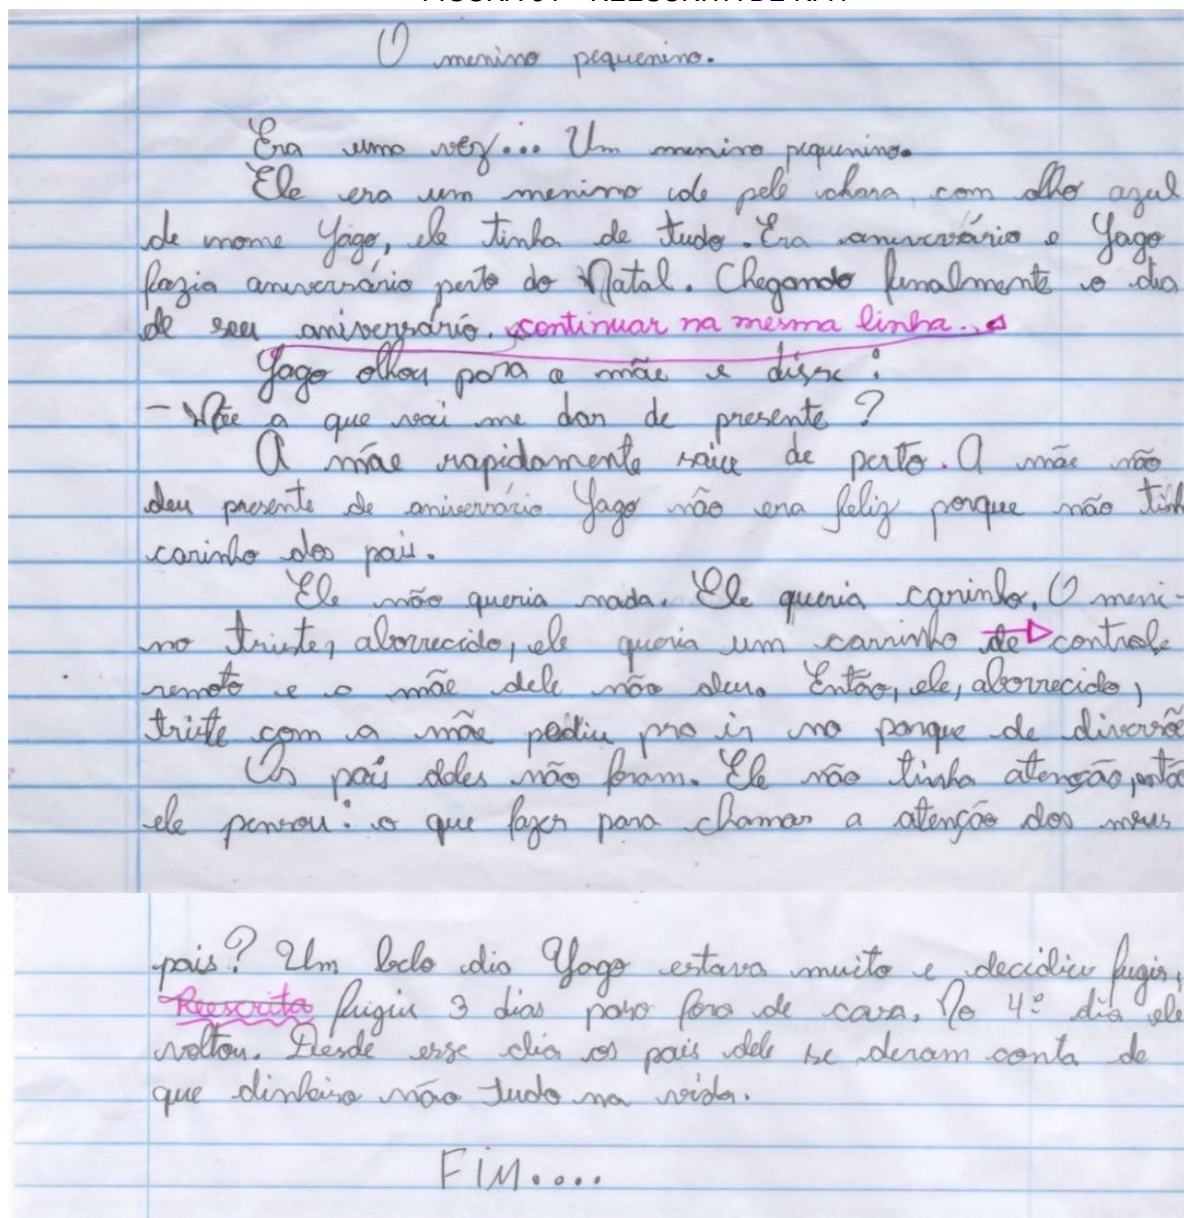 O menino pequenino.
Era uma vez... Um menino pequenino.
Ele era um menino de pele chara, com olho azul
de nome Yago, ele tinha de tudo. Era aniversário o Yago
fazia aniversário perto do Natal. Chegando finalmente o dia
de seu aniversário. continuar na mesma linha.
Yago olhou para a mãe e disse:
- Mãe a que vai me dar de presente?
A mãe rapidamente saiu de perto. A mãe não
deu presente de aniversário Yago não era feliz porque não tinh
carinho dos pais.
Ele não queria nada. Ele queria carinho. O meni-
no triste, aborrecido, ele queria um carrinho de controle
remoto e a mãe dele não deu. Então, ele, aborrecido,
triste com a mãe pediu pra ir no parque de diversõe
Os pais doles não foram. Ele não tinha atenção, entã
ele pensou: o que fazer para chamar a atenção dos meus
pais? Um belo dia Yago estava muito e decidiu fugir,
Reescrita fugiu 3 dias para fora de casa. No 4º dia ele
voltou. Desde esse dia os pais dele se deram conta de
que dinheiro não tudo na vida.
FIM....